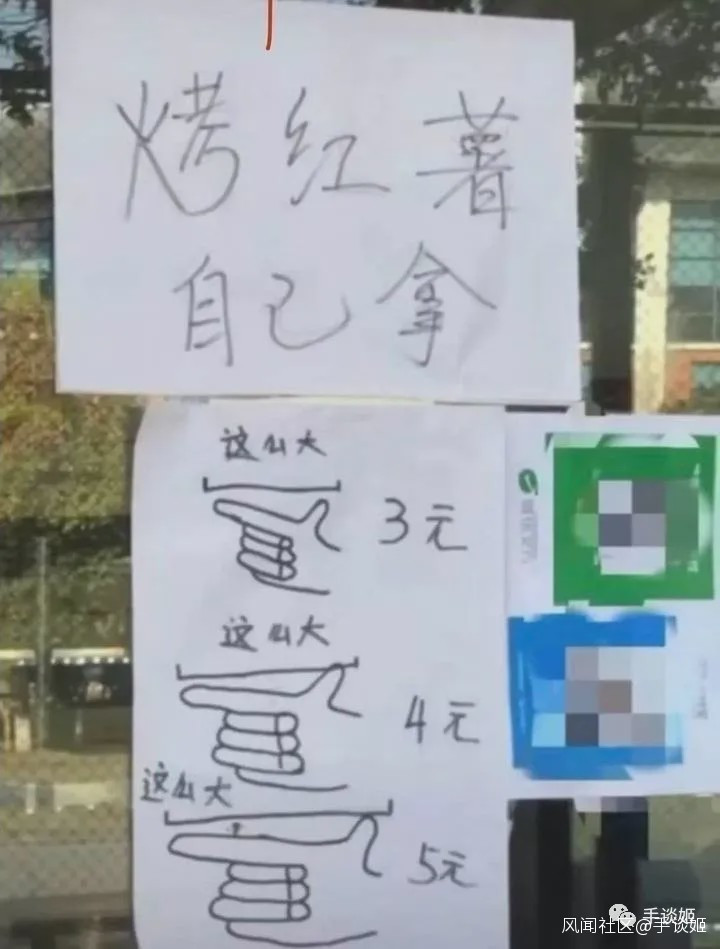 烤红薯
自己拿
这么大
3元
这么大
4元
这么大
5元
手谈姬
风闻社区@手谈姬